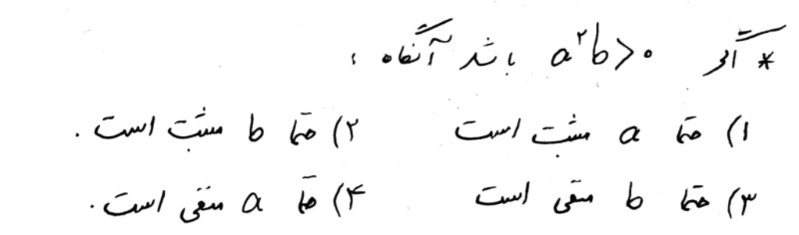 * اگر a²b>۰ باشد آنگاه :
۱) حتما a مثبت است ۲) حتما b مثبت است .
۳) حتما b منفی است ۴) حتما a منفی است .